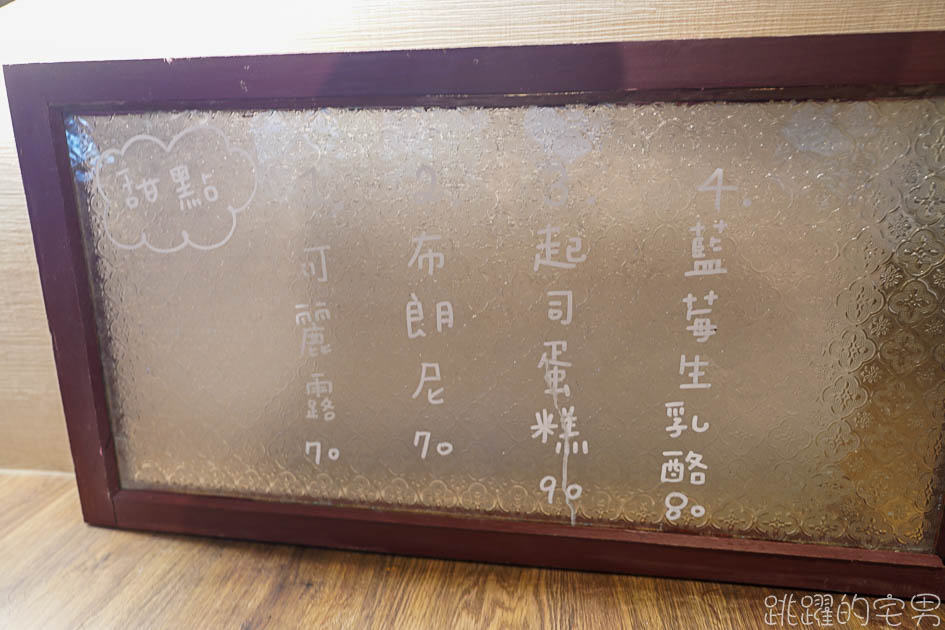 甜點
1. 可麗露 70
2. 布朗尼 70
3. 起司蛋糕 90
4. 藍莓生乳酪 80
跳躍的宅男